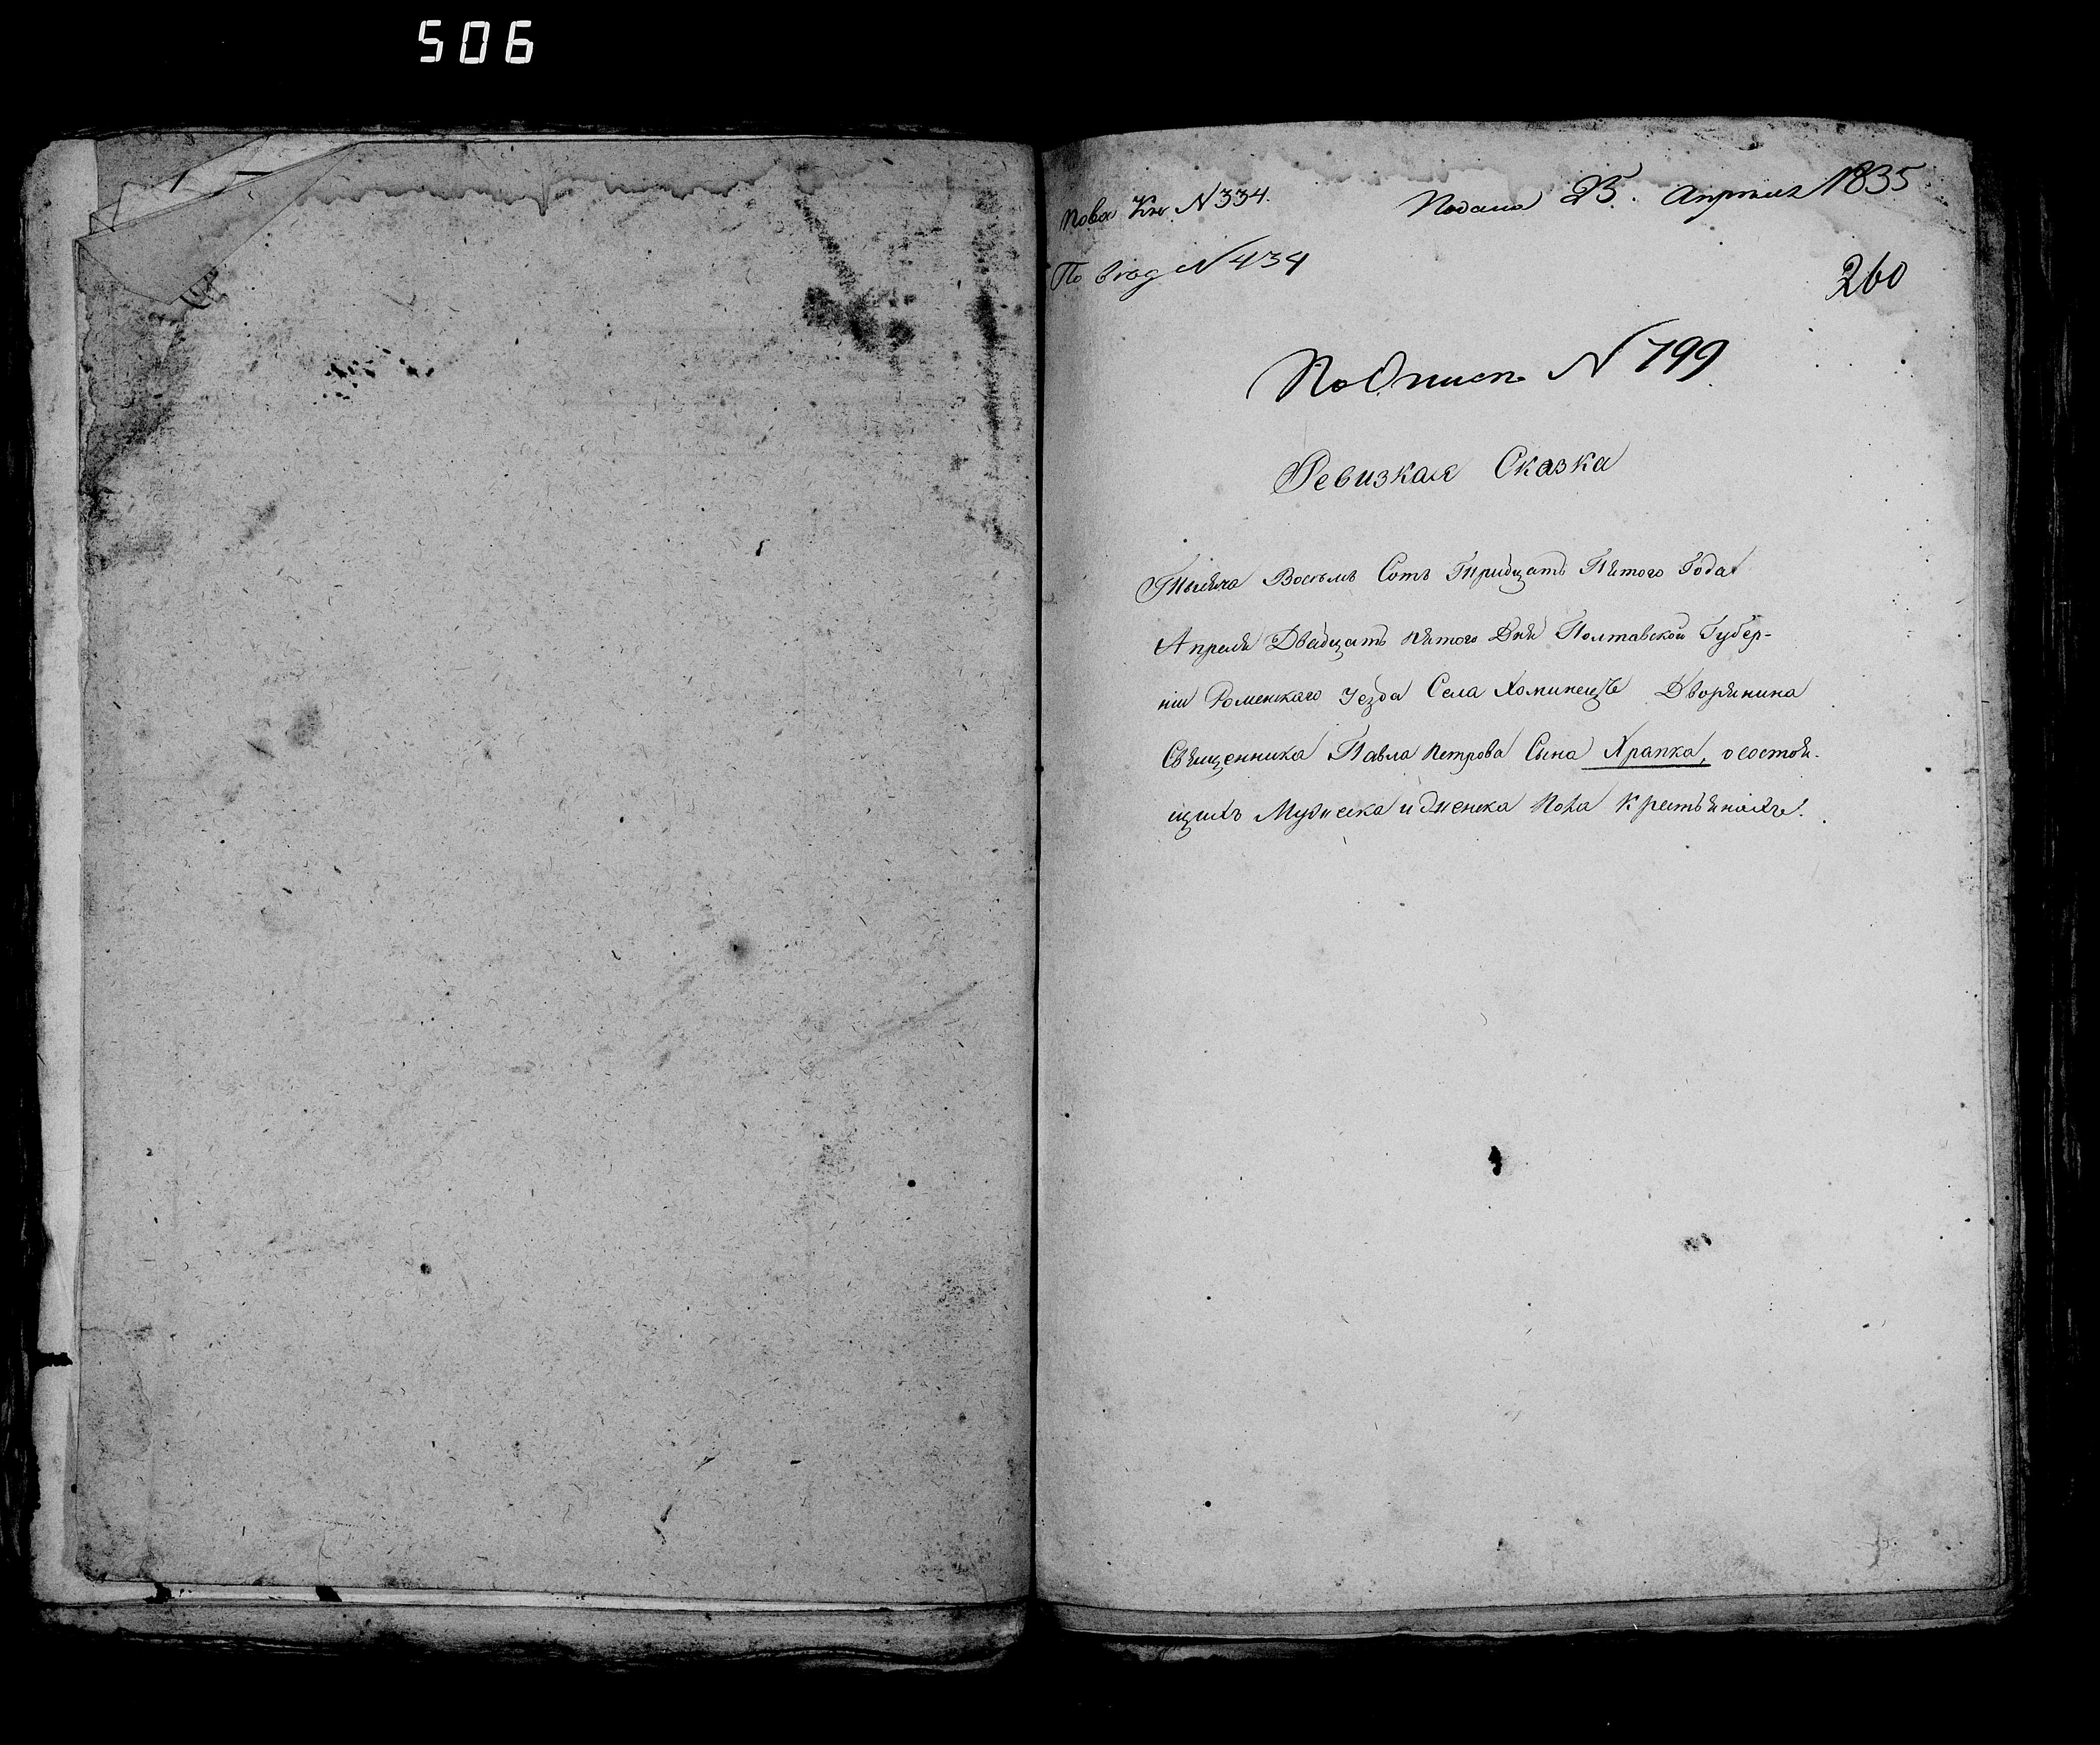 506
Кн. N 334. Подана 25. Апреля 1835
По вход N 434
260
По Описи N 799
Ревизкая Сказка
Тысяча Восемь Сотъ Тридцать Пятого Года
Апреля Двадцать пятого Дня Полтавской Губер-
ніи Роменскаго Уезда Села Хоминецъ Дворянина
Священника Павла Петрова Сына Храпка, о состоя-
щихъ Мужеска и Женска Пола Крестьянахъ.